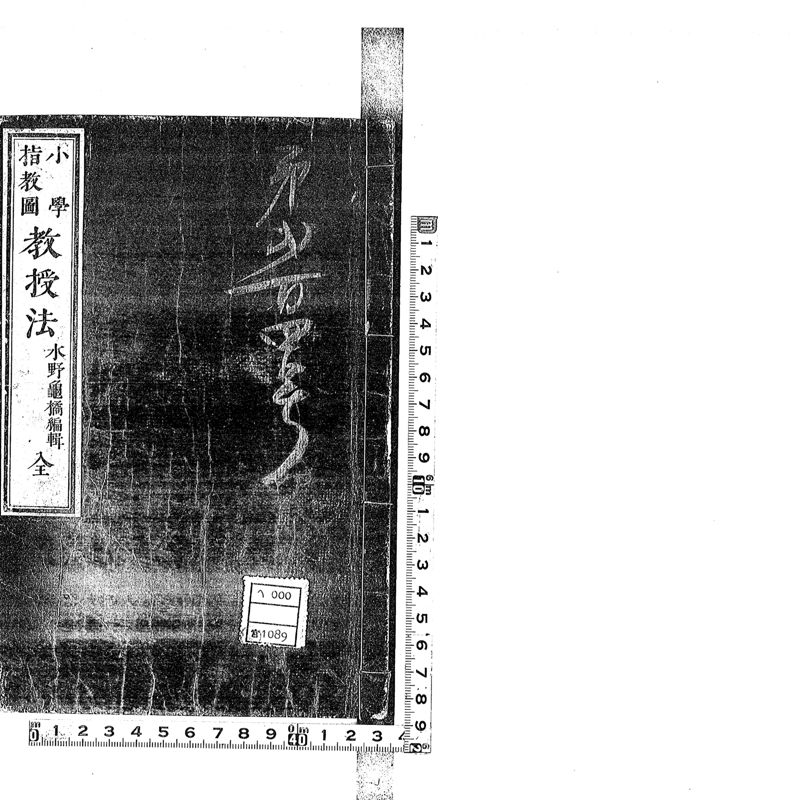 小學
指教圖
教授法
水野龜橘編輯
全
ヘ 000
1089
1 2 3 4 5 6 7 8 9 10 1 2 3 4 5 6 7 8 9
0 1 2 3 4 5 6 7 8 9 10 1 2 3 4